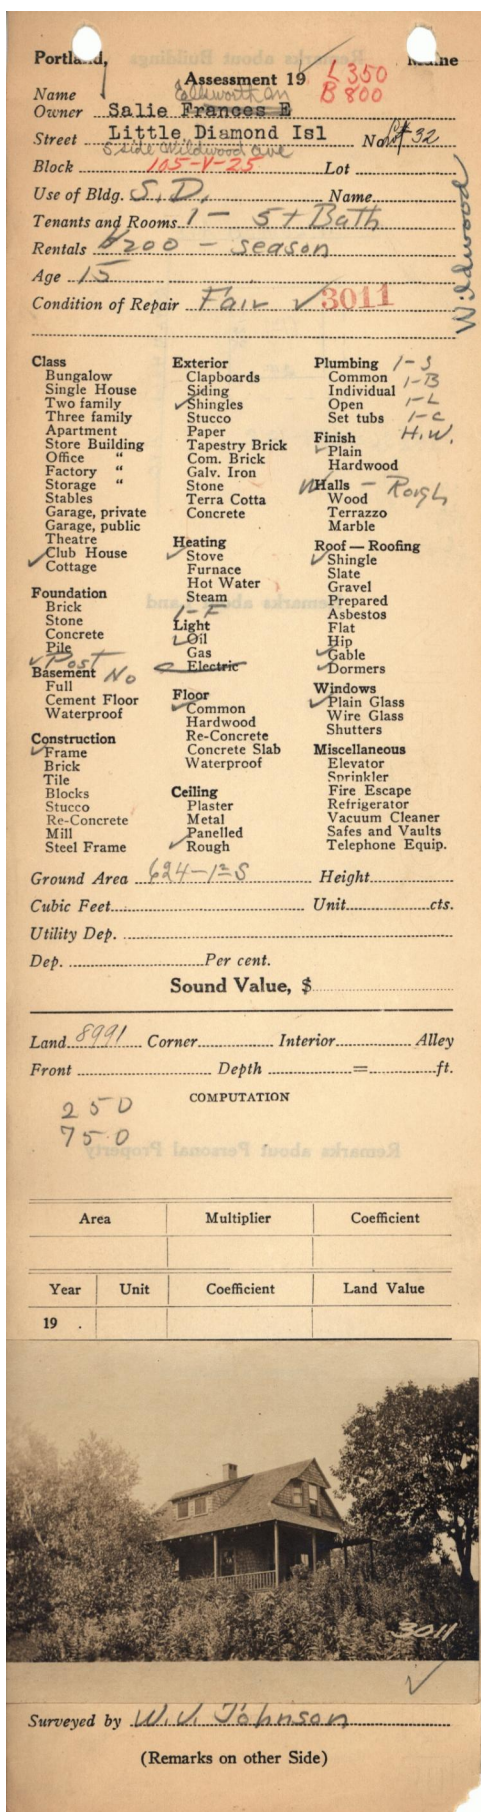 Portland, Maine
Assessment 19 L 350
B 800
Name Ellsworth
Owner Salie Frances E
Street Little Diamond Isl No. Lot # 32
S side Wildwood Ave
Wildwood
Block 105-V-25 Lot
Use of Bldg. S.D. Name
Tenants and Rooms 1 - 5 + Bath
Rentals $200 - season
Age 15
Condition of Repair Fair ✓ 3011
Class
Bungalow
Single House
Two family
Three family
Apartment
Store Building
Office "
Factory "
Storage "
Stables
Garage, private
Garage, public
Theatre
Club House
✓ Cottage
Foundation
Brick
Stone
Concrete
Pile
✓ Post
Basement No
Full
Cement Floor
Waterproof
Construction
✓ Frame
Brick
Tile
Blocks
Stucco
Re-Concrete
Mill
Steel Frame
Exterior
Clapboards
Siding
✓ Shingles
Stucco
Paper
Tapestry Brick
Com. Brick
Galv. Iron
Stone
Terra Cotta
Concrete
Heating
✓ Stove
Furnace
Hot Water
Steam
1-F
Light
✓ Oil
Gas
Electric
Floor
✓ Common
Hardwood
Re-Concrete
Concrete Slab
Waterproof
Ceiling
Plaster
Metal
Panelled
✓ Rough
Plumbing 1-S
Common 1-B
Individual
Open 1-L
Set tubs 1-C
H.W.
Finish
✓ Plain
Hardwood
WHalls - Rough
Wood
Terrazzo
Marble
Roof — Roofing
✓ Shingle
Slate
Gravel
Prepared
Asbestos
Flat
Hip
✓ Gable
✓ Dormers
Windows
✓ Plain Glass
Wire Glass
Shutters
Miscellaneous
Elevator
Sprinkler
Fire Escape
Refrigerator
Vacuum Cleaner
Safes and Vaults
Telephone Equip.
Ground Area 624-1 S Height
Cubic Feet Unit cts.
Utility Dep.
Dep. Per cent.
Sound Value, $
Land 8991 Corner Interior Alley
Front Depth = ft.
COMPUTATION
250
750
Area Multiplier Coefficient
Year Unit Coefficient Land Value
19 .
3011
✓
Surveyed by W. J. Johnson
(Remarks on other Side)